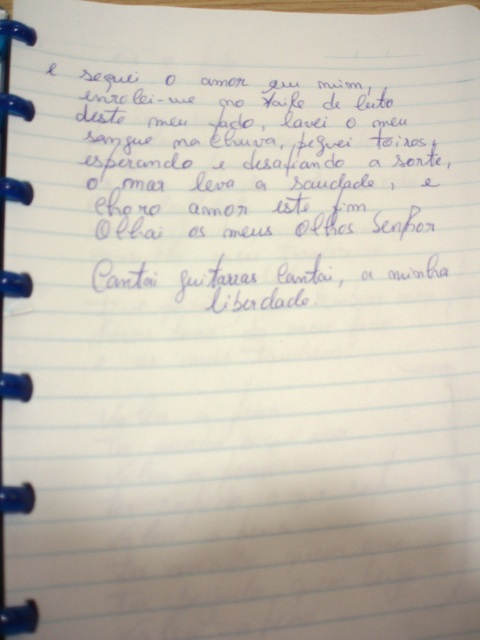 e sequei o amor em mim,
enrolei-me no xaile de luto
deste meu fado, lavei o meu
sangue na chuva, peguei toiros,
esperando e desafiando a sorte,
o mar leva a saudade, e
choro amor este fim
Olhai os meus olhos Senhor
Cantai guitarras cantai, a minha
liberdade.